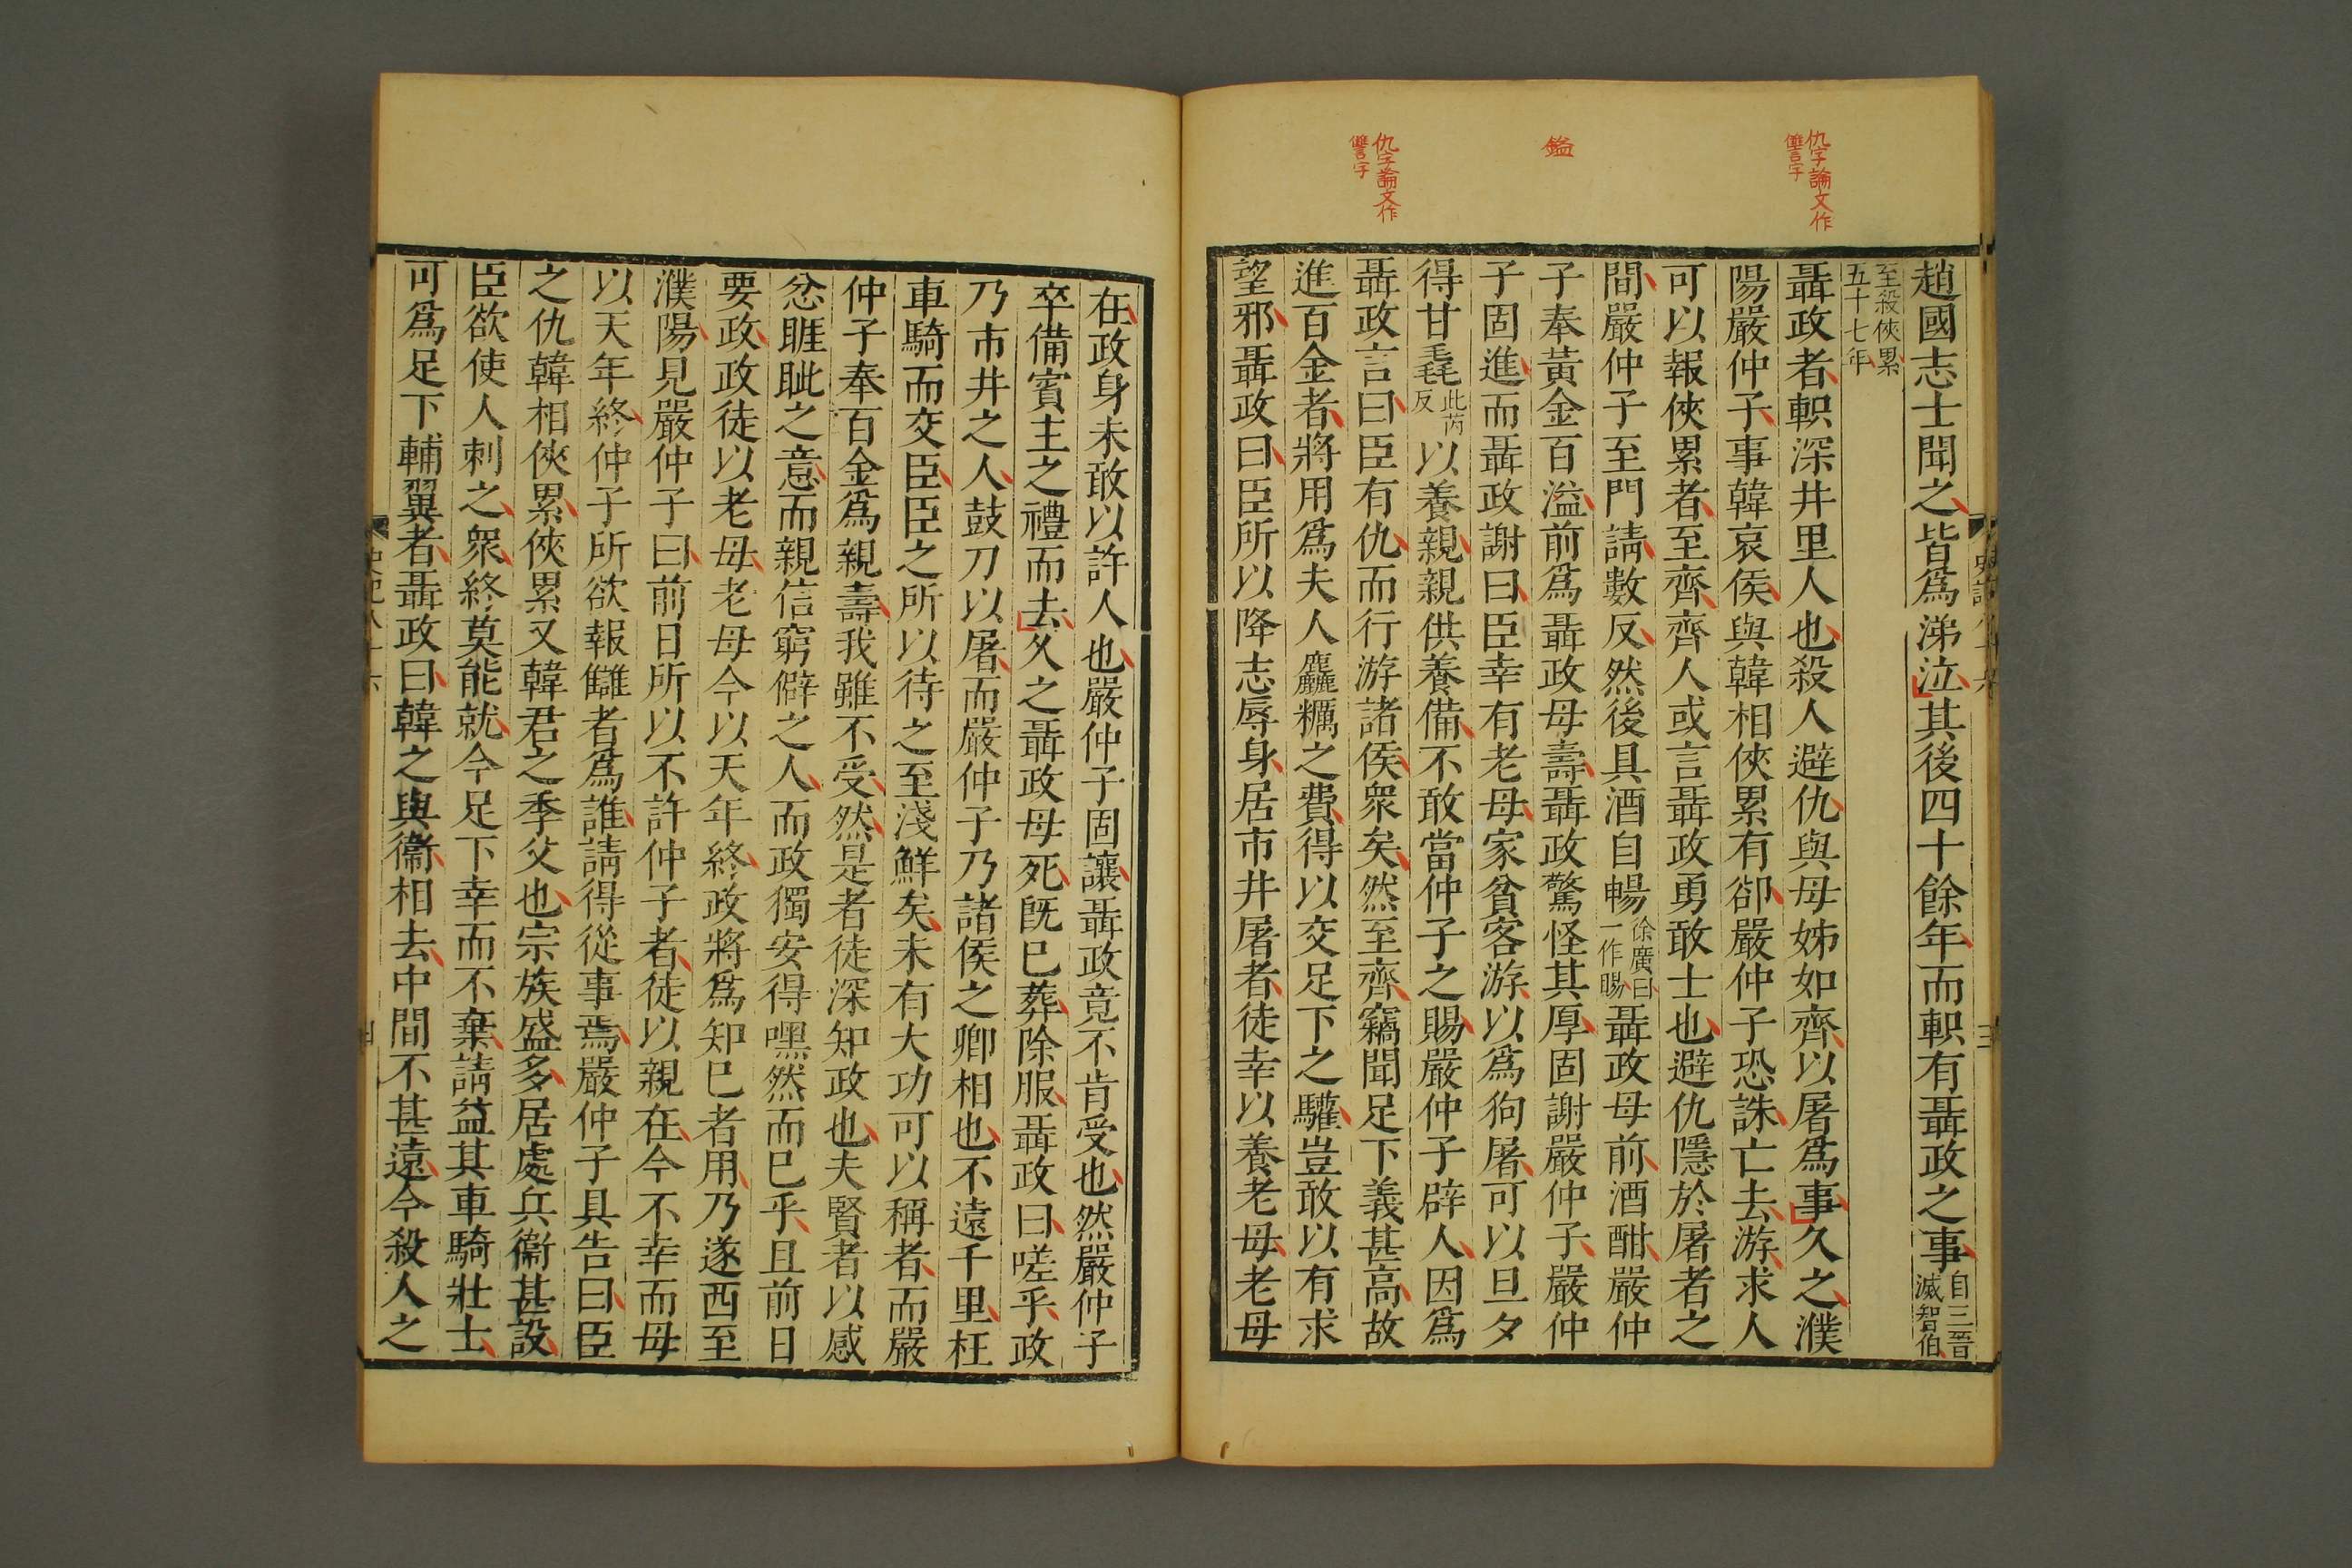 仇字論文作
讐字
鎰
仇字論文作
讐字
趙國志士聞之皆爲涕泣其後四十餘年而軹有聶政之事自三晉滅智伯
至殺俠累五十七年
聶政者軹深井里人也殺人避仇與母姊如齊以屠爲事久之濮
陽嚴仲子事韓哀侯與韓相俠累有郤嚴仲子恐誅亡去游求人
可以報俠累者至齊齊人或言聶政勇敢士也避仇隱於屠者之
間嚴仲子至門請數反然後具酒自暢徐廣曰一作賜聶政母前酒酣嚴仲
子奉黃金百溢前爲聶政母壽聶政驚怪其厚固謝嚴仲子嚴仲
子固進而聶政謝曰臣幸有老母家貧客游以爲狗屠可以旦夕
得甘毳此芮反以養親親供養備不敢當仲子之賜嚴仲子辟人因爲
聶政言曰臣有仇而行游諸侯衆矣然至齊竊聞足下義甚高故
進百金者將用爲夫人麤糲之費得以交足下之驩豈敢以有求
望邪聶政曰臣所以降志辱身居市井屠者徒幸以養老母老母
在政身未敢以許人也嚴仲子固讓聶政竟不肯受也然嚴仲子
卒備賓主之禮而去久之聶政母死旣已葬除服聶政曰嗟乎政
乃市井之人鼓刀以屠而嚴仲子乃諸侯之卿相也不遠千里枉
車騎而交臣臣之所以待之至淺鮮矣未有大功可以稱者而嚴
仲子奉百金爲親壽我雖不受然是者徒深知政也夫賢者以感
忿睚眦之意而親信窮僻之人而政獨安得嘿然而已乎且前日
要政政徒以老母老母今以天年終政將爲知已者用乃遂西至
濮陽見嚴仲子曰前日所以不許仲子者徒以親在今不幸而母
以天年終仲子所欲報讎者爲誰請得從事焉嚴仲子具告曰臣
之仇韓相俠累俠累又韓君之季父也宗族盛多居處兵衞甚設
臣欲使人刺之衆終莫能就今足下幸而不棄請益其車騎壯士
可爲足下輔翼者聶政曰韓之與衞相去中間不甚遠今殺人之